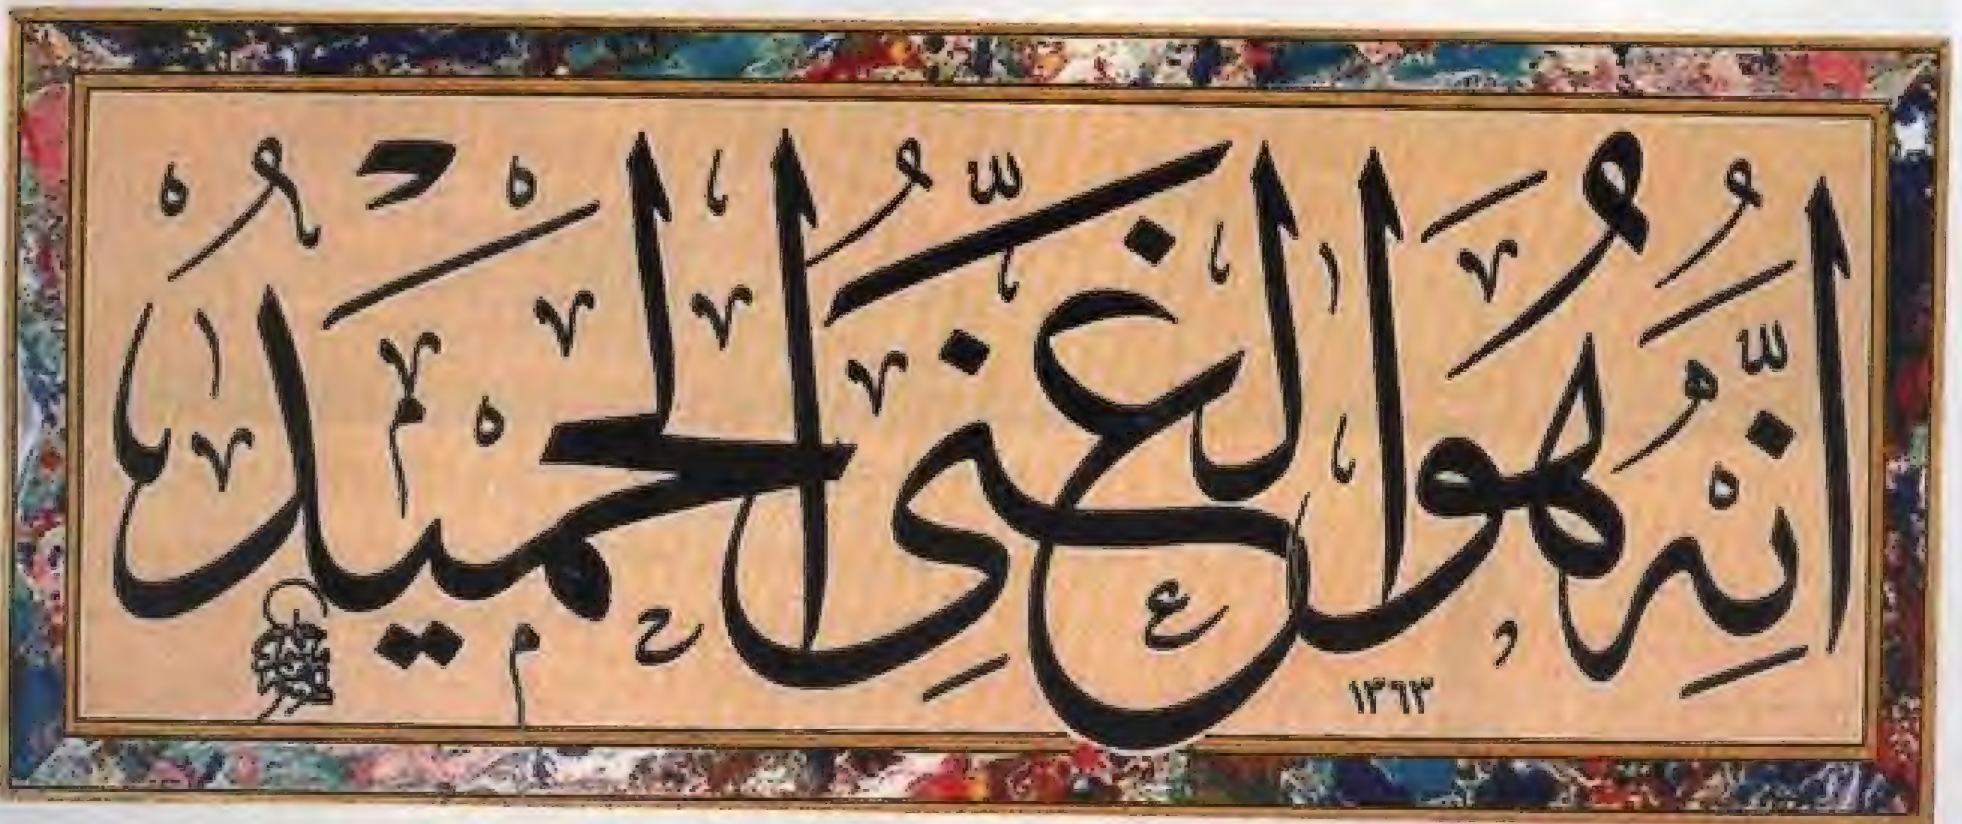 اِنَّهُ هُوَ الْغَنِىُّ الْحَمِيدُ
١٣٦٣